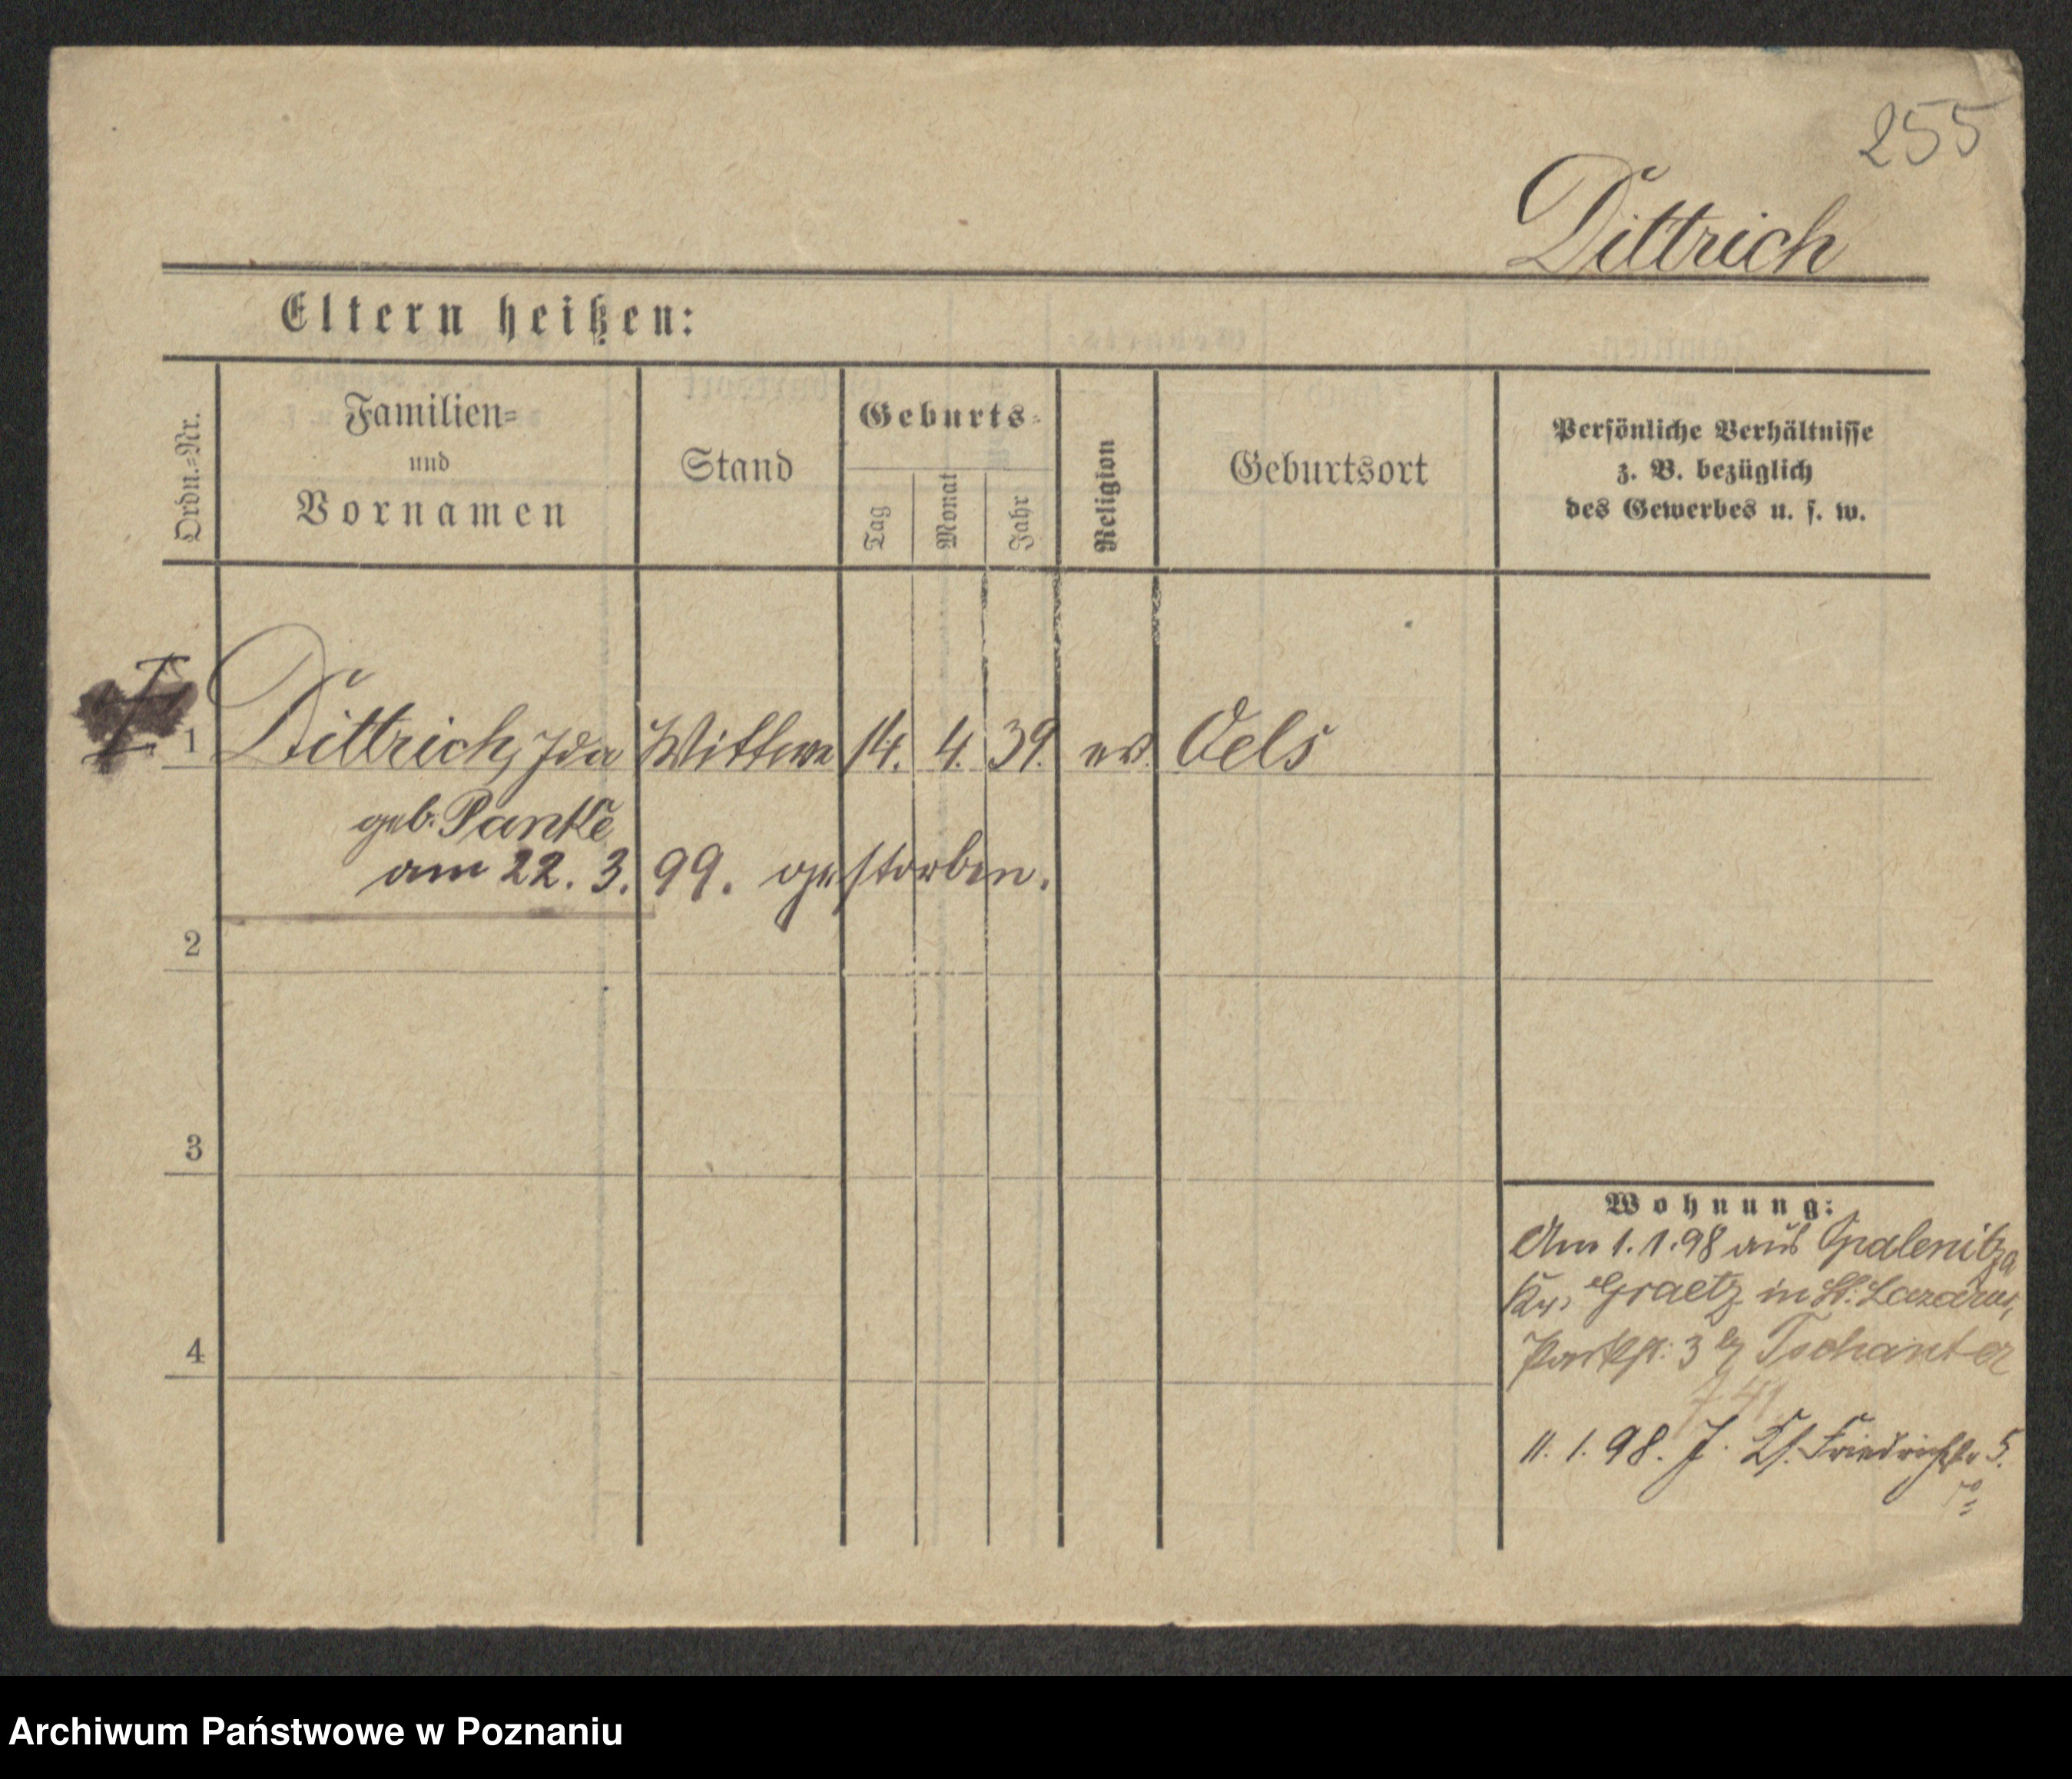 255
Dittrich
Eltern heißen:
Ordn.=Nr.
Familien=
und
Vornamen
Stand
Geburts=
Tag
Monat
Jahr
Religion
Geburtsort
Persönliche Verhältnisse
z. B. bezüglich
des Gewerbes u. s. w.
1 Dittrich, Ida Wittwe 14. 4. 39. ev. Oels
geb. Pantke
am 22. 3. 99. gestorben.
2
3
4
Wohnung:
Am 1.1.98 aus Opalenitza
Kr. Graetz in St. Lazarus,
Parkstr. 3 Tschanter
11. 1. 98. J. Friedrichstr 5.
Archiwum Państwowe w Poznaniu